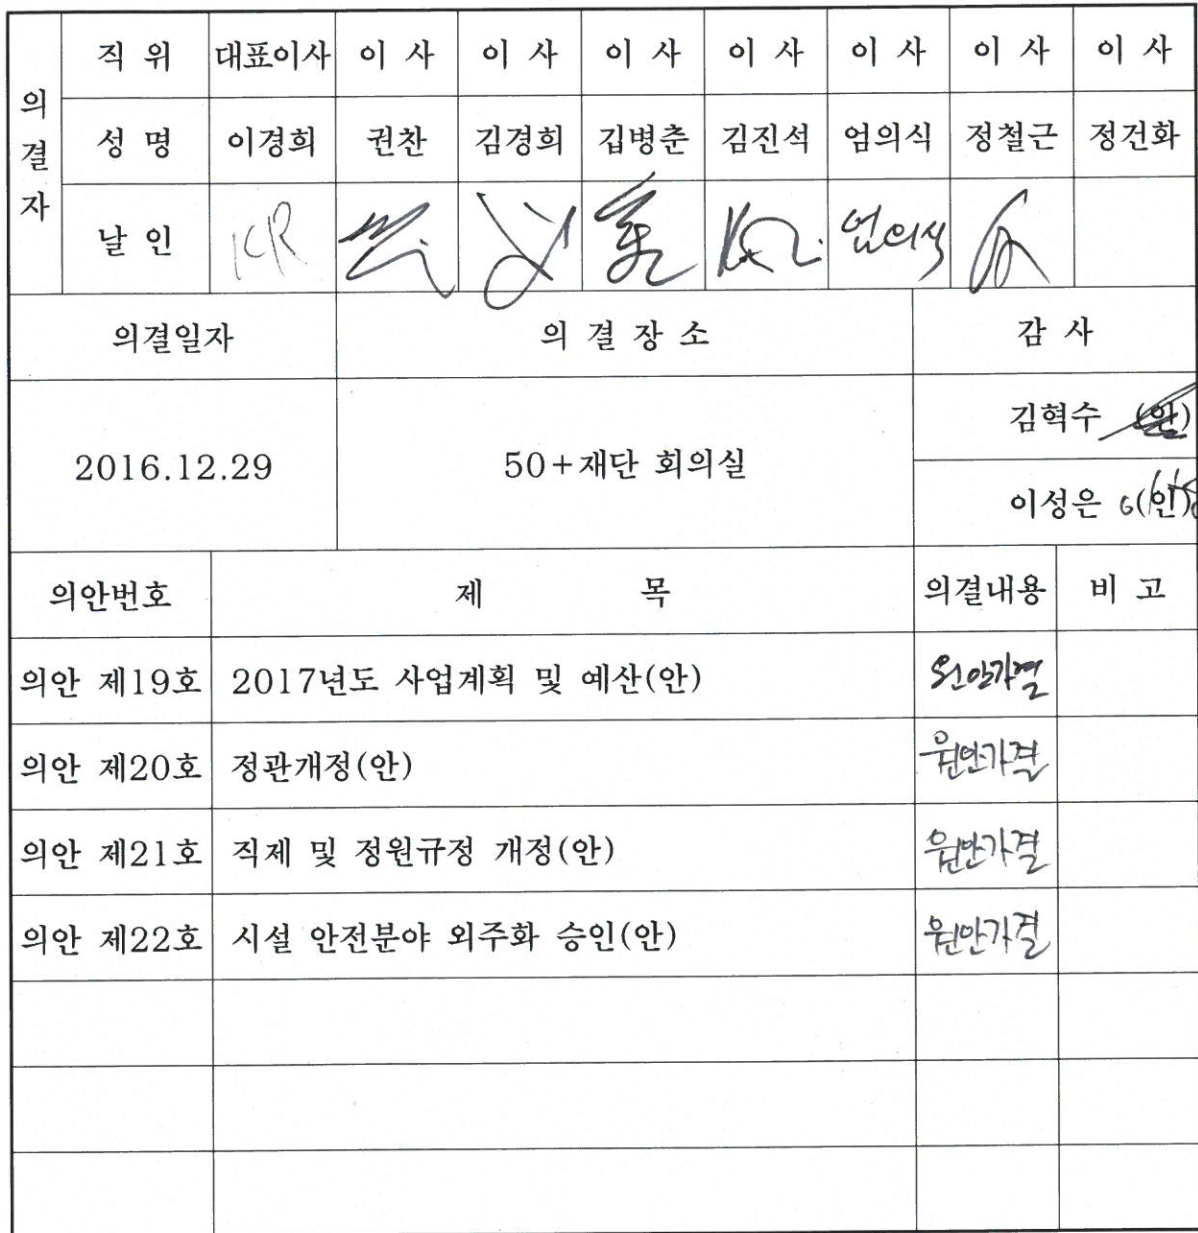 의결자
직 위 대표이사 이 사 이 사 이 사 이 사 이 사 이 사 이 사
성 명 이경희 권찬 김경희 김병춘 김진석 엄의식 정철근 정건화
날 인 KR 엄의식
의결일자 의 결 장 소 감 사
2016.12.29 50+재단 회의실
김혁수 (인)
이성은 (인)
의안번호 제 목 의결내용 비 고
의안 제19호 2017년도 사업계획 및 예산(안) 원안가결
의안 제20호 정관개정(안) 원안가결
의안 제21호 직제 및 정원규정 개정(안) 원안가결
의안 제22호 시설 안전분야 외주화 승인(안) 원안가결